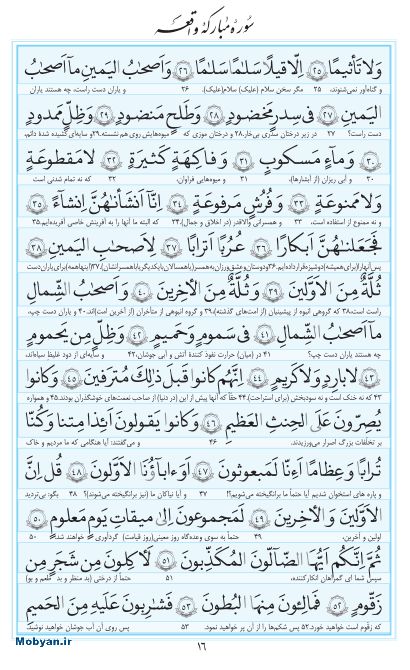 سورهٔ مبارکهٔ واقعه
وَلَا تَأْثِيمًا ﴿۲۵﴾ إِلَّا قِيلًا سَلَامًا سَلَامًا ﴿۲۶﴾ وَأَصْحَابُ الْيَمِينِ مَا أَصْحَابُ
و گناه‌آور نمی‌شنوند، ۲۵ مگر سخن سلام (علیک) سلام (علیک). ۲۶ و یاران دست راست، چه هستند یاران
الْيَمِينِ ﴿۲۷﴾ فِي سِدْرٍ مَخْضُودٍ ﴿۲۸﴾ وَطَلْحٍ مَنْضُودٍ ﴿۲۹﴾ وَظِلٍّ مَمْدُودٍ
دست راست؟ ۲۷ در زیر درختان سدری بی‌خار، ۲۸ و درختان موزی که میوه‌هایش روی هم نشسته، ۲۹ و سایه‌ای گشیده شدهٔ دائم،
﴿۳۰﴾ وَمَاءٍ مَسْكُوبٍ ﴿۳۱﴾ وَفَاكِهَةٍ كَثِيرَةٍ ﴿۳۲﴾ لَا مَقْطُوعَةٍ
۳۰ و آبی ریزان (از آبشارها)، ۳۱ و میوه‌هایی فراوان، ۳۲ که نه تمام شدنی است
وَلَا مَمْنُوعَةٍ ﴿۳۳﴾ وَفُرُشٍ مَرْفُوعَةٍ ﴿۳۴﴾ إِنَّا أَنْشَأْنَاهُنَّ إِنْشَاءً ﴿۳۵﴾
و نه ممنوع از استفاده است، ۳۳ و همسرانی والاقدر (در اخلاق و جمال)، ۳۴ که البته ما آنها را به آفرینش خاصی آفریده‌ایم، ۳۵
فَجَعَلْنَاهُنَّ أَبْكَارًا ﴿۳۶﴾ عُرُبًا أَتْرَابًا ﴿۳۷﴾ لِأَصْحَابِ الْيَمِينِ ﴿۳۸﴾
پس آنها را (برای همیشه) دوشیزه قرار داده‌ایم، ۳۶ دوستان و عشق‌ورزان به همسر (با همسالان با یکدیگر یا با همسرانشان)، ۳۷ (اینها همه) برای یاران دست
ثُلَّةٌ مِنَ الْأَوَّلِينَ ﴿۳۹﴾ وَثُلَّةٌ مِنَ الْآخِرِينَ ﴿۴۰﴾ وَأَصْحَابُ الشِّمَالِ
راست است، ۳۸ که گروهی انبوه از پیشینیان (از امت‌های گذشته)، ۳۹ و گروه انبوهی از متأخران (از آخرین امت) اند. ۴۰ و یاران دست چپ،
مَا أَصْحَابُ الشِّمَالِ ﴿۴۱﴾ فِي سَمُومٍ وَحَمِيمٍ ﴿۴۲﴾ وَظِلٍّ مِنْ يَحْمُومٍ
چه هستند یاران دست چپ؟ ۴۱ در (میان) حرارت نفوذ کنندهٔ آتش و آبی جوشان، ۴۲ و سایه‌ای از دود غلیظ سیاه‌اند،
﴿۴۳﴾ لَا بَارِدٍ وَلَا كَرِيمٍ ﴿۴۴﴾ إِنَّهُمْ كَانُوا قَبْلَ ذَلِكَ مُتْرَفِينَ ﴿۴۵﴾ وَكَانُوا
۴۳ که نه خنک است و نه سودبخش (برای استراحت). ۴۴ حقّا که آنها پیش از این (در دنیا) از صاحب نعمت‌های خوشگذران بودند، ۴۵ و همواره
يُصِرُّونَ عَلَى الْحِنْثِ الْعَظِيمِ ﴿۴۶﴾ وَكَانُوا يَقُولُونَ أَئِذَا مِتْنَا وَكُنَّا
بر تخلفات بزرگ اصرار می‌ورزیدند، ۴۶ و می‌گفتند: آیا هنگامی که ما مردیم و خاک
تُرَابًا وَعِظَامًا أَإِنَّا لَمَبْعُوثُونَ ﴿۴۷﴾ أَوَآبَاؤُنَا الْأَوَّلُونَ ﴿۴۸﴾ قُلْ إِنَّ
و پاره های استخوان شدیم آیا حتماً ما برانگیخته می‌شویم؟! ۴۷ و آیا نیاکان ما (نیز برانگیخته می‌شوند)؟ ۴۸ بگو: بی‌تردید
الْأَوَّلِينَ وَالْآخِرِينَ ﴿۴۹﴾ لَمَجْمُوعُونَ إِلَى مِيقَاتِ يَوْمٍ مَعْلُومٍ ﴿۵۰﴾
اولین و آخرین، ۴۹ حتماً به سوی وعده‌گاه روز معینی (روز قیامت) گردآوری خواهند شد. ۵۰
ثُمَّ إِنَّكُمْ أَيُّهَا الضَّالُّونَ الْمُكَذِّبُونَ ﴿۵۱﴾ لَآكِلُونَ مِنْ شَجَرٍ مِنْ
سپس شما ای گمراهان انکار کننده، ۵۱ حتماً از درختی (بد منظر و بد طعم و بو)
زَقُّومٍ ﴿۵۲﴾ فَمَالِئُونَ مِنْهَا الْبُطُونَ ﴿۵۳﴾ فَشَارِبُونَ عَلَيْهِ مِنَ الْحَمِيمِ
که زقّوم است خواهید خورد. ۵۲ پس شکم‌ها را از آن پر خواهید نمود. ۵۳ پس روی آن آب جوشان خواهید نوشید.
۱۶
Mobyan.ir